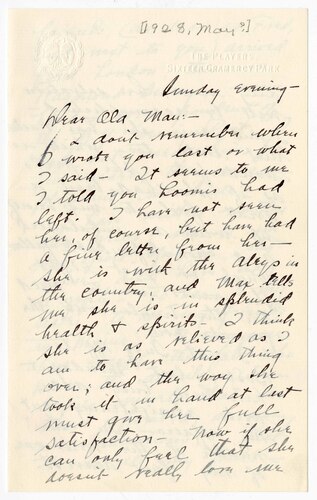 [1928, May?]
THE PLAYERS
SIXTEEN GRAMERCY PARK
Sunday Evening -
Dear Old Man:-
I don't remember when
I wrote you last or what
I said - It seems to me
I told you Loomis had
left. I have not seen
her, of course, but have had
a fine letter from her -
she is with the
the country; and Max tells
me she is in splendid
health & spirits - I think
she is as relieved as I
am to have this thing
over; and the way she
took it in hand at last
must give her full
satisfaction - Now if she
can only feel that she
doesn't really love me